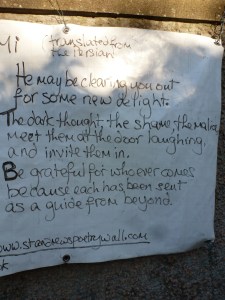 mi (translated from
the Persian)
He may be clearing you out
for some new delight.
The dark thought, the shame, the malice
meet them at the door laughing,
and invite them in.
Be grateful for whoever comes
because each has been sent
as a guide from beyond.